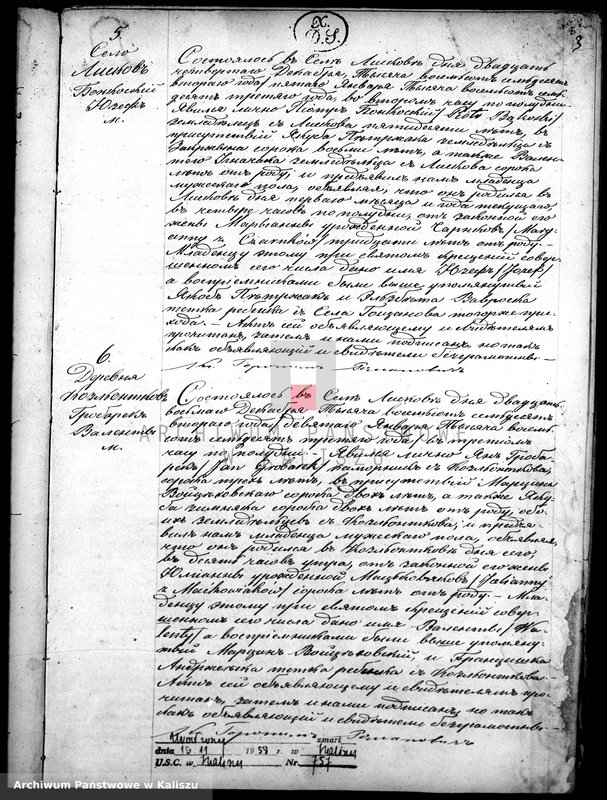 X.
D.S.
3
5.
Село
Лисковъ
Юзефъ
м.
Состоялось въ Селѣ Лисковѣ дня двадцать
четвертаго Декабря, Тысяча восемьсотъ семьдесятъ
втораго года / пятаго Января Тысяча восемьсотъ семь-
десятъ третьяго года, во второмъ часу по полудни.
Явился лично Петръ
земледѣлецъ съ Лискова пятидесяти лѣтъ, въ
присутствіи Якуба земледѣльца съ
сорока восьми лѣтъ, а также Вален-
таго земледѣльца съ Лискова сорока
лѣтъ отъ роду, и предъявилъ намъ младенца
мужескаго пола, объявляя, что онъ родился въ
Лисковѣ дня перваго мѣсяца и года текущаго,
въ четыре часовъ по полудни, отъ законной его
жены Маріанны урожденной Чарнковъ / Mary-
anny z Czarnków / тридцати лѣтъ отъ роду.
Младенцу этому при святомъ крещеніи совер-
шенномъ сего числа дано имя Юзефъ / Józef /
а воспріемниками были выше упомянутый
Якобъ и Элжбета
тетка ребенка съ Села тогоже при-
хода. – Актъ сей объявляющему и свидѣтелямъ
прочитанъ, затѣмъ и нами подписанъ, но такъ
какъ объявляющій и свидѣтели безграмотны. –
6.
Деревня
Гробарекъ
Валенты
м.
Состоялось въ Селѣ Лисковѣ дня двадцать
восьмаго Декабря Тысяча восемьсотъ семьдесятъ
втораго года / девятаго Января Тысяча восемь-
сотъ семьдесятъ третьяго года / о третьемъ
часу по полудни. – Явился лично Янъ Гроба-
рекъ / Jan Grobarek / каморникъ съ
сорока трехъ лѣтъ, въ присутствіи Марцина
Войцѣховскаго сорока двохъ лѣтъ, а также Яку-
ба сорока двохъ лѣтъ отъ роду, обо-
ихъ земледѣльцевъ съ и предъя-
вилъ намъ младенца мужескаго пола, объявляя,
что онъ родился въ дня сего,
въ десять часовъ утра, отъ законной его жены
Юліанны урожденной / Julianny
z Maćkowiaków / сорока лѣтъ отъ роду. – Мла-
денцу этому при святомъ крещеніи совер-
шенномъ сего числа дано имя Валенты / Wa-
lenty / а воспріемниками были выше упомяну-
тый Марцинъ Войцѣховскій, и Францишка
тетка ребенка съ
Актъ сей объявляющему и свидѣтелямъ про-
читанъ, затѣмъ и нами подписанъ, но такъ
какъ объявляющій и свидѣтели безграмотны. –
zmarł
dnia 15 11 1959 r. w Kaliszu
U.S.C. w Kaliszu Nr. 757
ARCHIWUM PAŃSTWOWE
W KALISZU
Archiwum Państwowe w Kaliszu